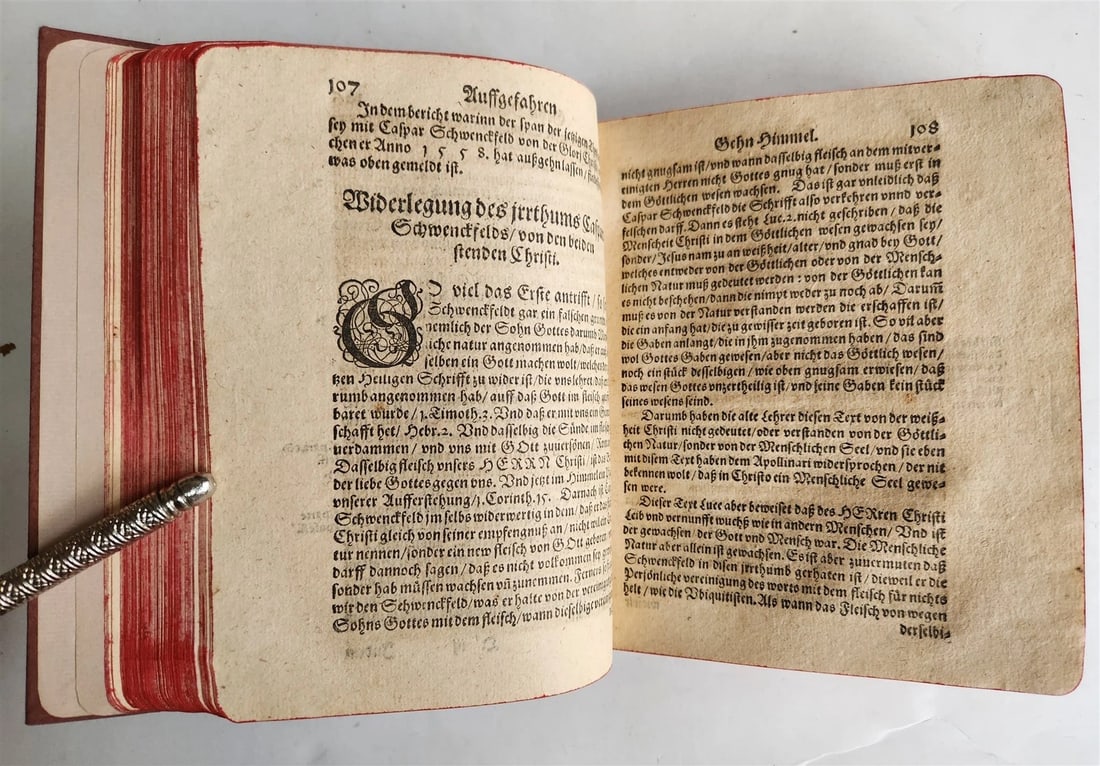 107
Auffgefahren
In dem bericht warinn der span der jetzigen
sey mit Caspar Schwenckfeld von der Glori
chen er Anno 1558. hat außgehn lassen /
was oben gemeldt ist.
Widerlegung des jrrthums
Schwenckfelds / von den beiden
stenden Christi.
SO viel das Erste antrifft /
Schwenckfeldt gar ein falschen
nemlich der Sohn Gottes darumb
liche natur angenommen hab / daß er
selben ein Gott machen wolt /
tzen Heiligen Schrifft zu wider ist / die vns lehret /
rumb angenommen hab / auff daß Gott im fleisch
baret wurde / 1. Timoth. 3. Vnd daß er mit vns ein
schafft het / Hebr. 2. Vnd dasselbig die Sünde im
verdammen / vnd vns mit GOtt zuuersönen /
Dasselbig fleisch vnsers HERRN Christi / ist das
der liebe Gottes gegen vns. Vnd jetzt im Himmel
vnserer Aufferstehung / 1. Corinth. 15. Darnach ist
Schwenckfeld jm selbs widerwertig in dem / daß er
Christi gleich von seiner empfengnuß an / nicht wil
tur nennen / sonder ein new fleisch von GOtt geboren
darff dannoch sagen / daß es nicht volkommen sey
sonder hab müssen wachsen vñ zunemmen. Ferners
wir den Schwenckfeld / was er halte von der
Sohns Gottes mit dem fleisch / wann dieselbige
Gehn Himmel.
108
nicht gnugsam ist / vnd wann dasselbig fleisch an dem mitver-
einigten Herren nicht Gottes gnug hat / sonder muß erst in
dem Göttlichen wesen wachsen. Das ist gar vnleidlich daß
Caspar Schwenckfeld die Schrifft also verkehren vnnd ver-
felschen darff. Dann es steht Luc. 2. nicht geschriben / daß die
Menscheit Christi in dem Göttlichen wesen gewachsen sey /
sonder / Jesus nam zu an weißheit / alter / vnd gnad bey Gott /
welches entweder von der Göttlichen oder von der Mensch-
lichen Natur muß gedeutet werden : von der Göttlichen kan
es nicht beschehen / dann die nimpt weder zu noch ab / Darum̃
muß es von der Natur verstanden werden die erschaffen ist /
die ein anfang hat / die zu gewisser zeit geboren ist. So vil aber
die Gaben anlangt / die in jhm zugenommen haben / das sind
wol Gottes Gaben gewesen / aber nicht das Göttlich wesen /
noch ein stück desselbigen / wie oben gnugsam erwiesen / daß
das wesen Gottes vnzertheilig ist / vnd seine Gaben kein stück
seines wesens seind.
Darumb haben die alte Lehrer diesen Text von der weiß-
heit Christi nicht gedeutet / oder verstanden von der Göttli-
chen Natur / sonder von der Menschlichen Seel / vnd sie eben
mit disem Text haben dem Apollinari widersprochen / der nit
bekennen wolt / daß in Christo ein Menschliche Seel gewe-
sen were.
Dieser Text Luce aber beweiset daß des HERren Christi
Leib vnd vernunfft wuchß wie in andern Menschen / Vnd ist
der gewachsen / der Gott vnd Mensch war. Die Menschliche
Natur aber allein ist gewachsen. Es ist aber zuuermuten daß
Schwenckfeld in disen jrrthumb gerhaten ist / dieweil er die
Persönliche vereinigung des worts mit dem fleisch für nichts
helt / wie die Vbiquitisten. Als wann das Fleisch von wegen
derselbi-